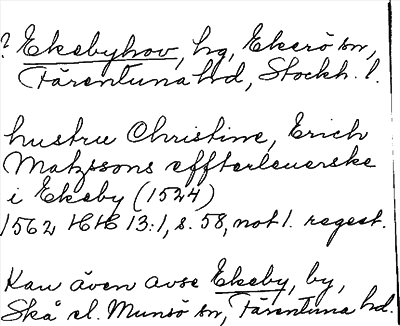 ? Ekebyhov, hg, Ekerö sn,
Färentuna hd, Stockh. l.
hustru Christine, Erich
Matzssons effterleuerske
i Ekeby (1524)
1562 HH 13:1, s. 58, not 1. regest.
Kan även avse Ekeby, by,
Skå el. Munsö sn, Färentuna hd.